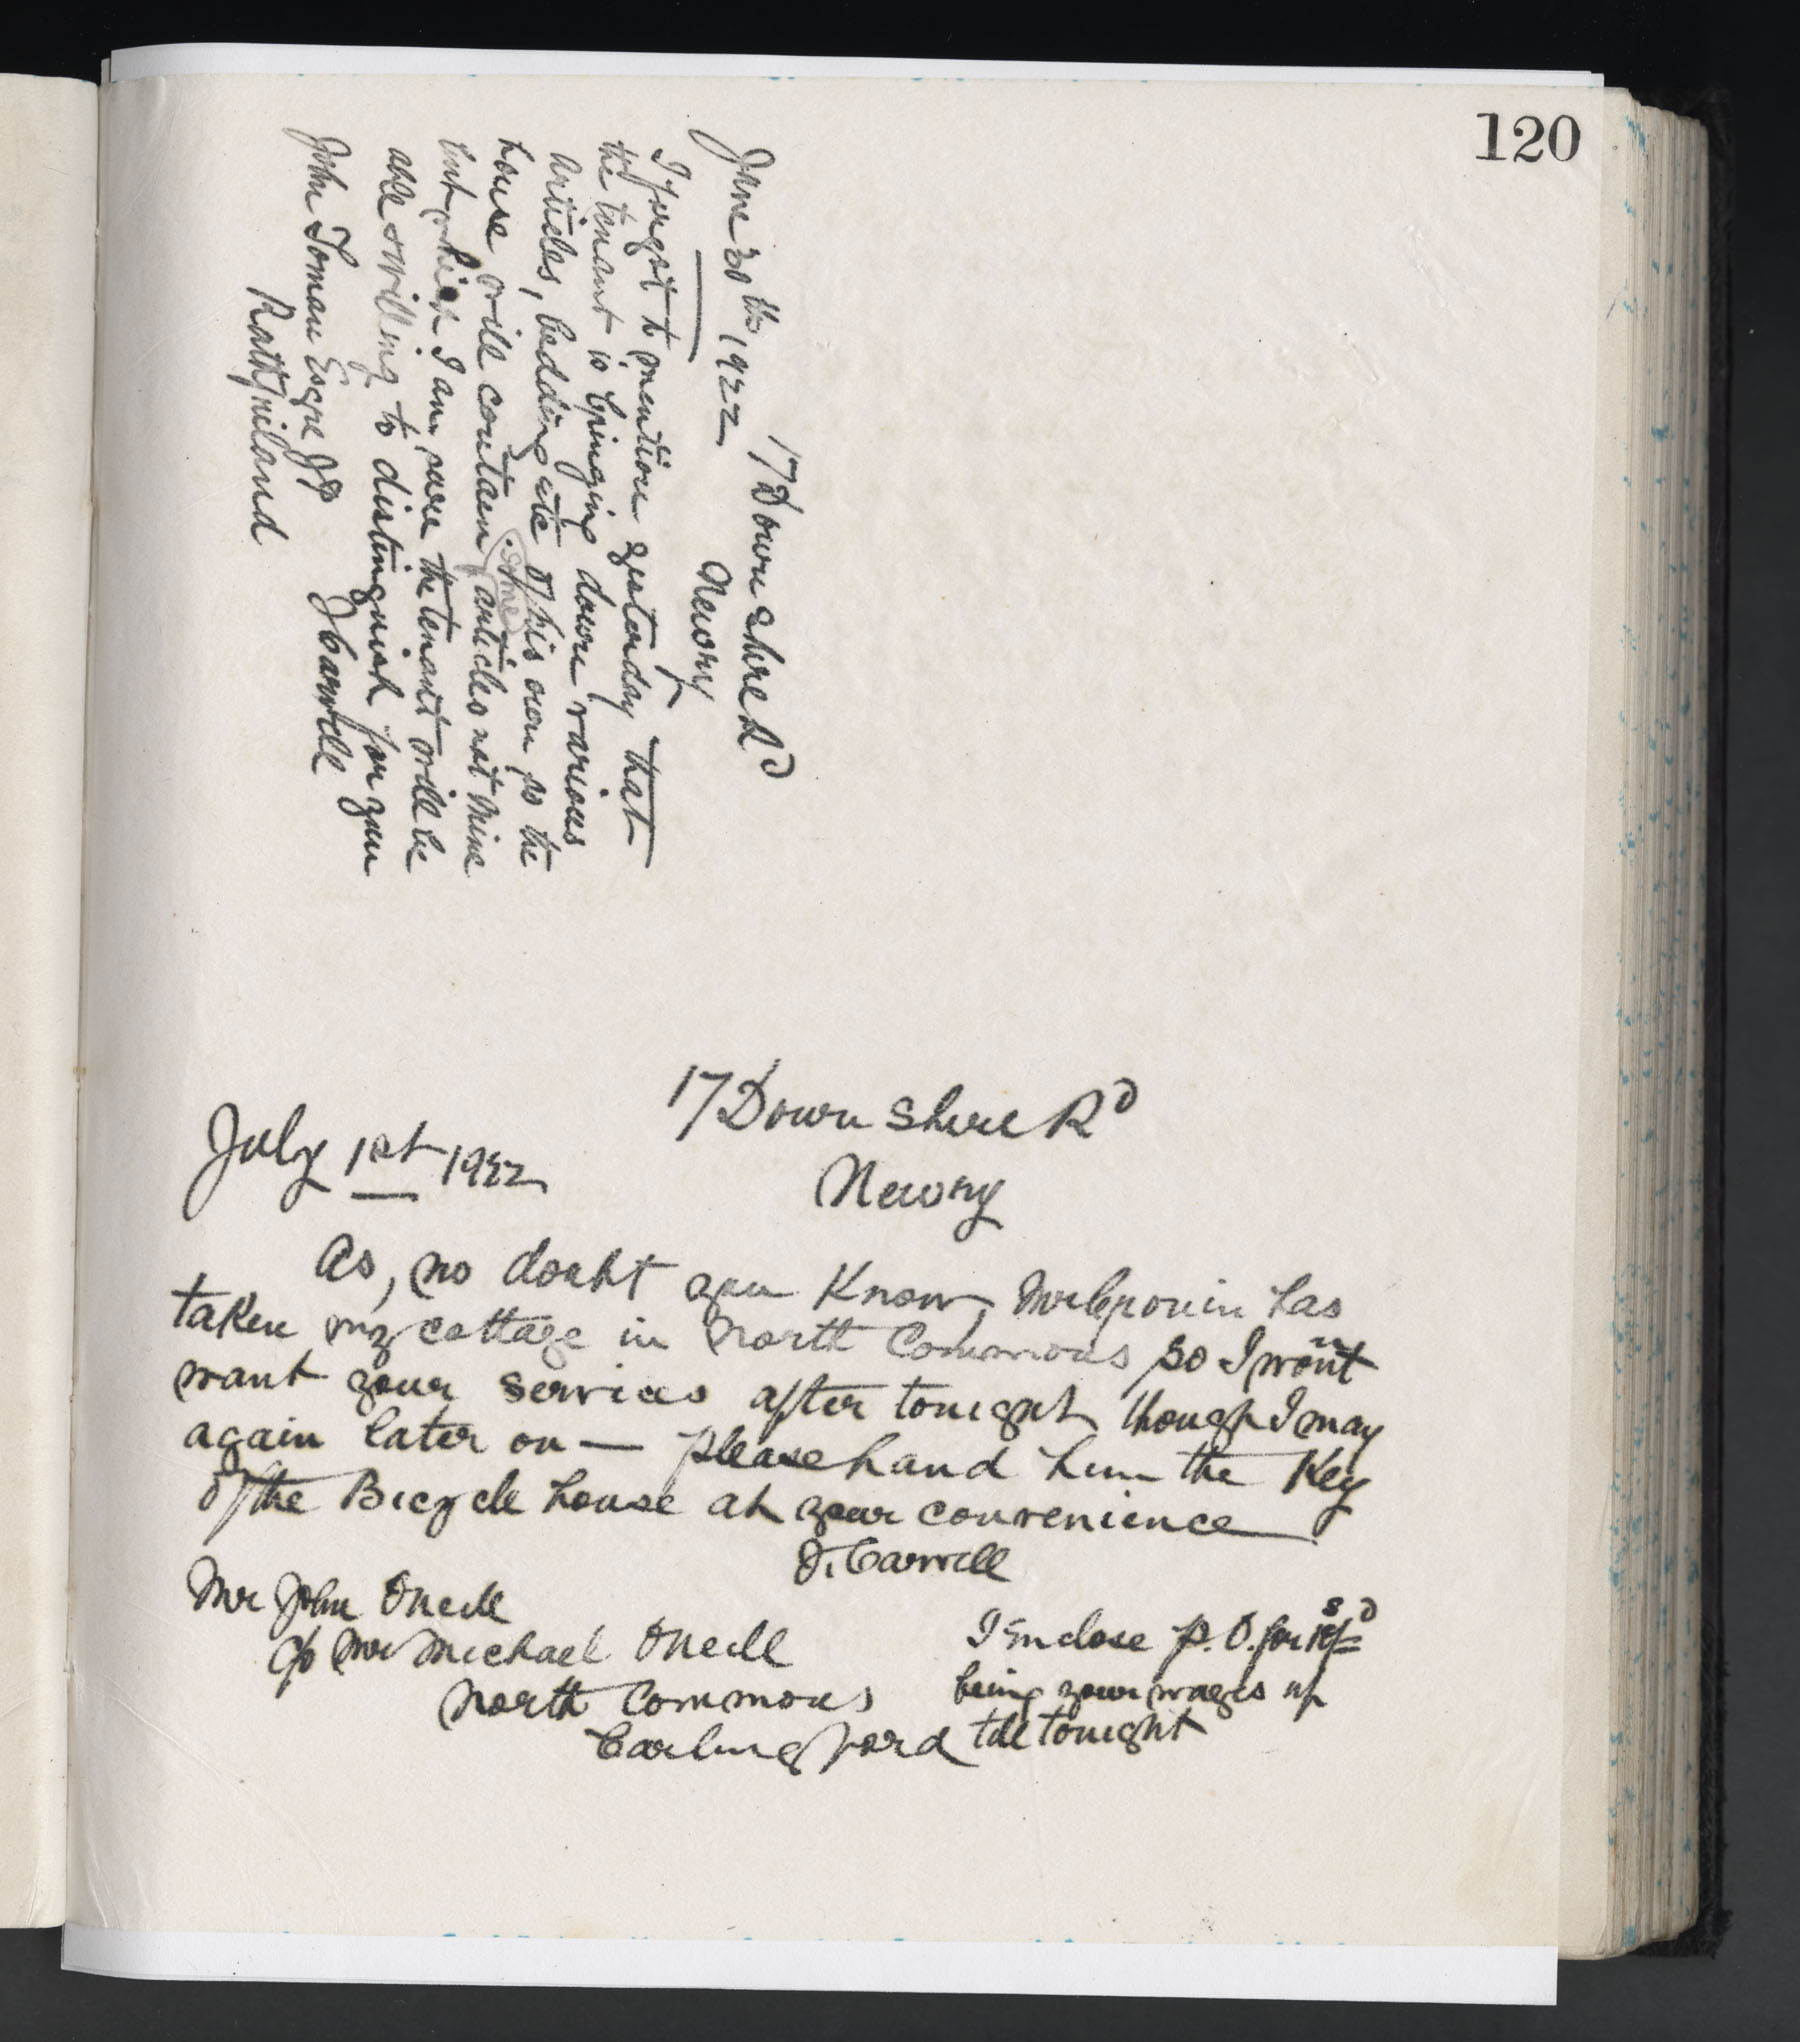 120
17 Downshire Rd
Newry
June 30th 1922
I forgot to mention yesterday that
the tenant is bringing down various
articles, bedding etc of his own, so the
house will contain some articles not mine
but which I am sure the tenant will be
able & willing to distinguish for you
J Carvill
John Toman Esqre JP
Rathfriland
17 Downshire Rd
Newry
July 1st 1922
As, no doubt you Know, Mr Cronin has
taken my cottage in North Commons so I won't
want your services after tonight though I may
again later on — please hand him the Key
of the Bicycle house at your convenience
J. Carvill
Mr John ONeill
c/o Mr Michael ONeill
North Commons
Carlingford
I Enclose P.O. for
being your wages up
till tonight